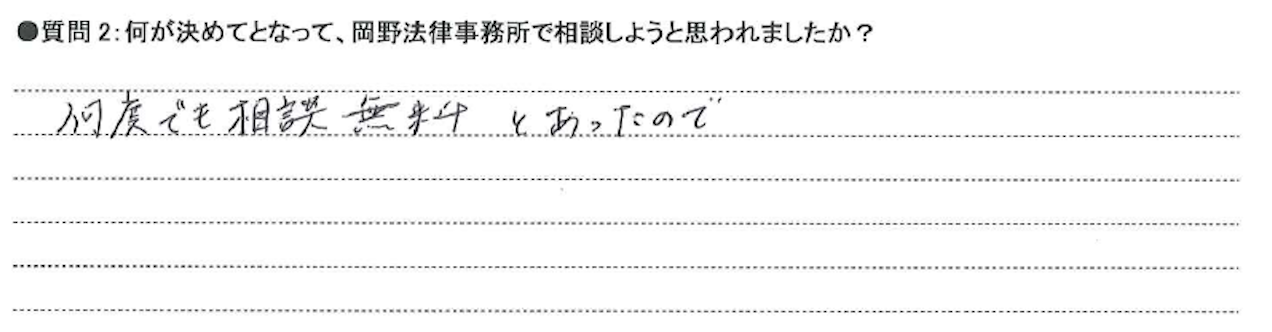 ●質問2：何が決めてとなって、岡野法律事務所で相談しようと思われましたか？
何度でも相談無料とあったので